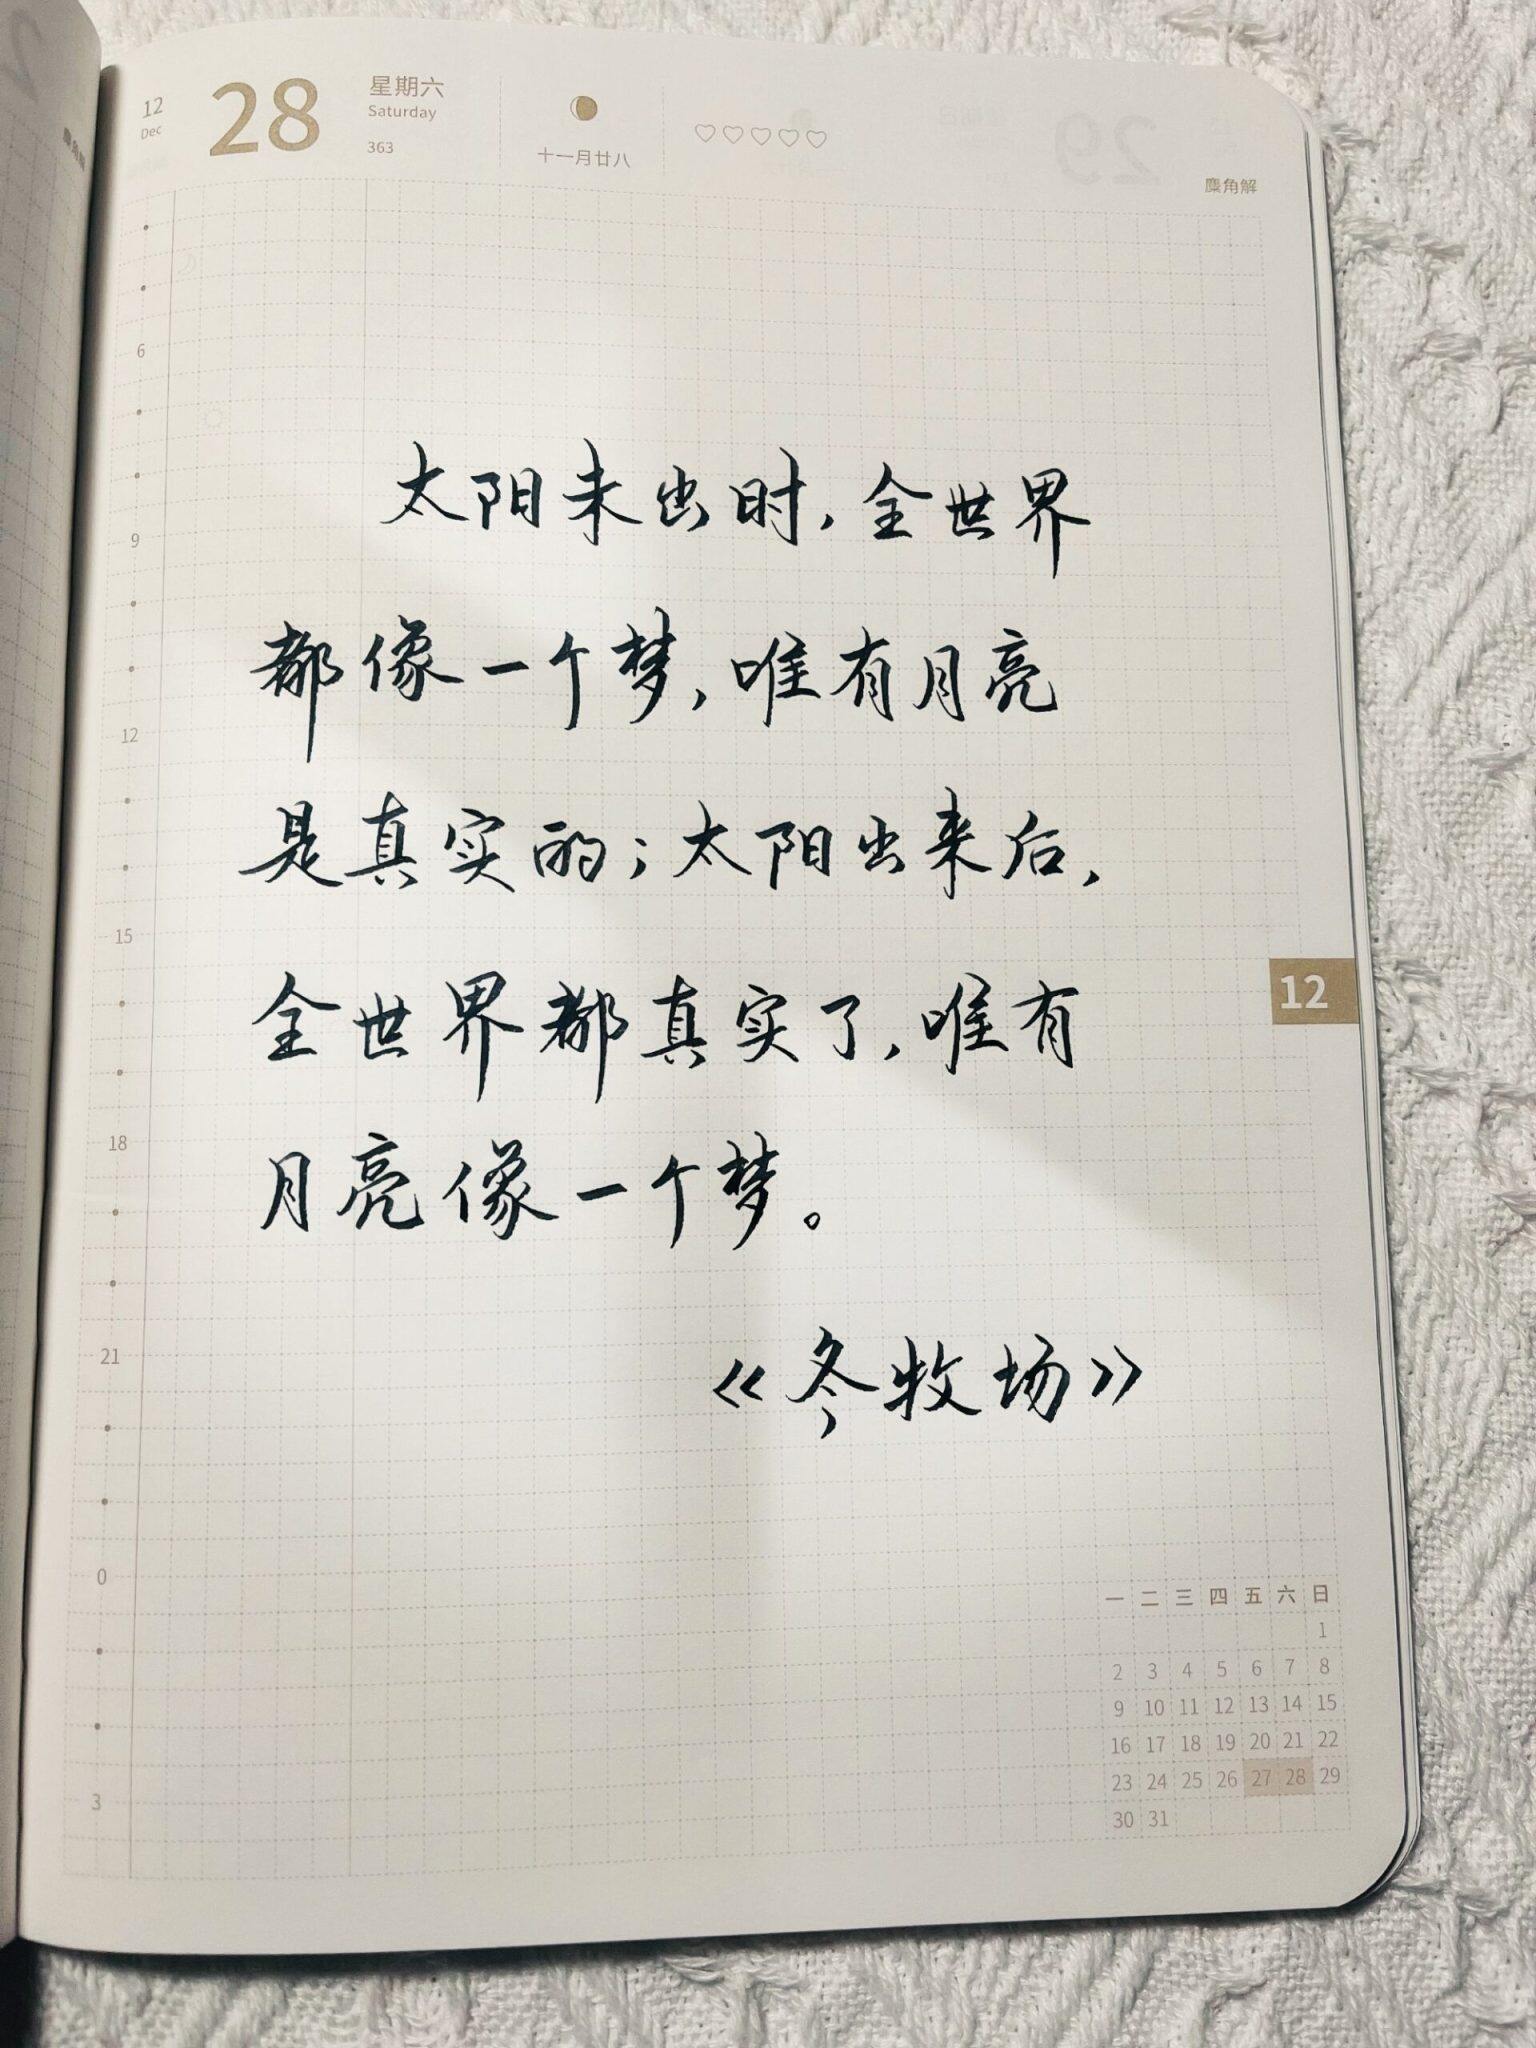 12
Dec
28
星期六
Saturday
363
十一月廿八
麋角解
6
9
12
15
18
21
0
3
太阳未出时，全世界
都像一个梦，唯有月亮
是真实的；太阳出来后，
全世界都真实了，唯有
月亮像一个梦。
《冬牧场》
12
一 二 三 四 五 六 日
1
2 3 4 5 6 7 8
9 10 11 12 13 14 15
16 17 18 19 20 21 22
23 24 25 26 27 28 29
30 31